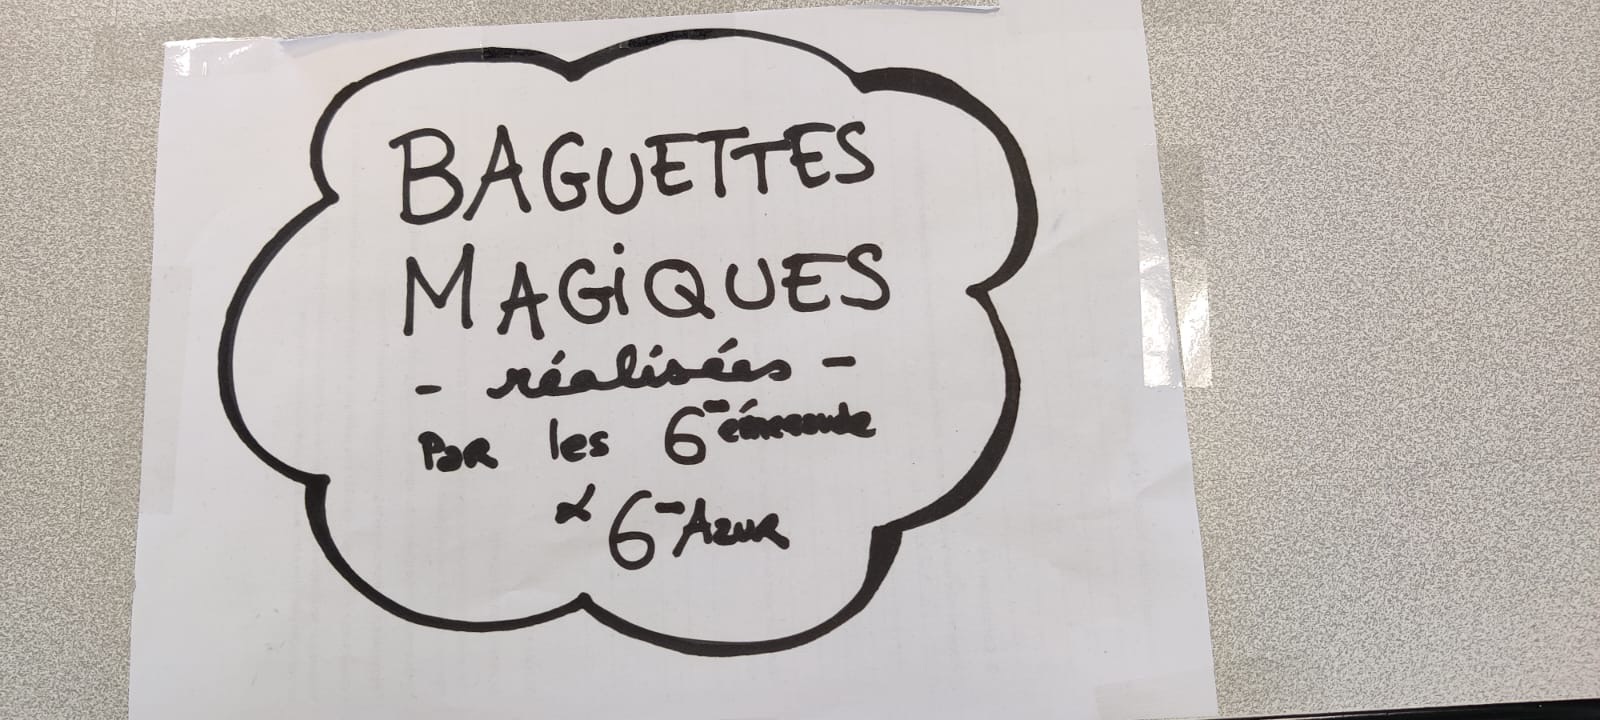 BAGUETTES
MAGiQUES
- réalisées -
PAR les 6- émeraude
& 6- Azur